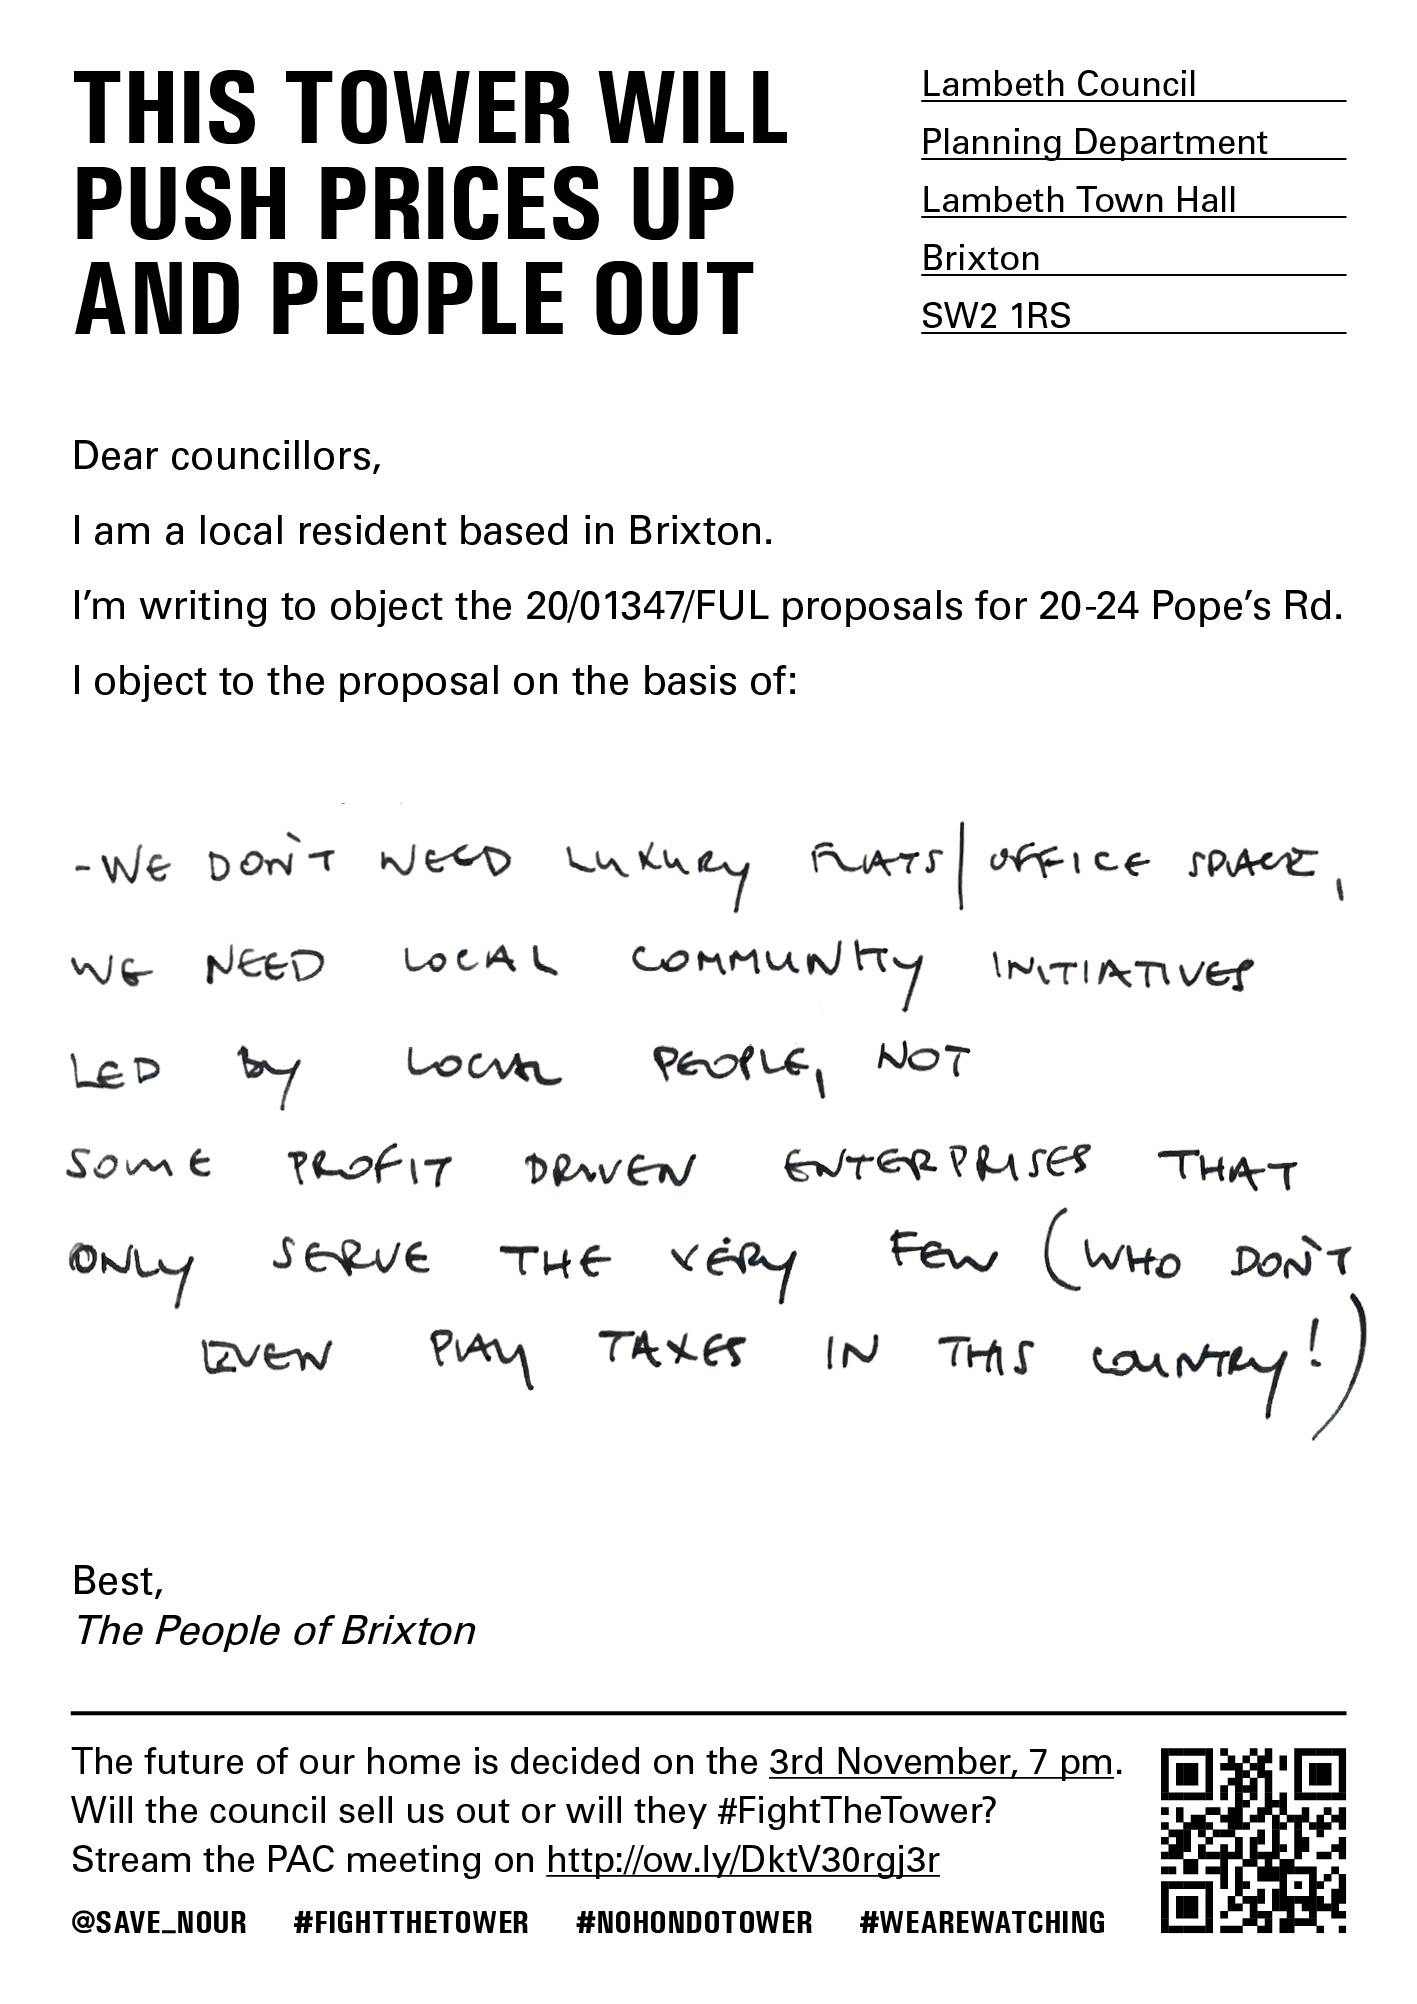 THIS TOWER WILL
PUSH PRICES UP
AND PEOPLE OUT
Lambeth Council
Planning Department
Lambeth Town Hall
Brixton
SW2 1RS
Dear councillors,
I am a local resident based in Brixton.
I'm writing to object the 20/01347/FUL proposals for 20-24 Pope's Rd.
I object to the proposal on the basis of:
-WE DON'T NEED LUXURY FLATS/OFFICE SPACE,
WE NEED LOCAL COMMUNITY INITIATIVES
LED BY LOCAL PEOPLE, NOT
SOME PROFIT DRIVEN ENTERPRISES THAT
ONLY SERVE THE VERY FEW (WHO DON'T
EVEN PAY TAXES IN THIS COUNTRY!)
Best,
The People of Brixton
The future of our home is decided on the 3rd November, 7 pm.
Will the council sell us out or will they #FightTheTower?
Stream the PAC meeting on http://ow.ly/DktV30rgj3r
@SAVE_NOUR #FIGHTTHETOWER #NOHONDOTOWER #WEAREWATCHING